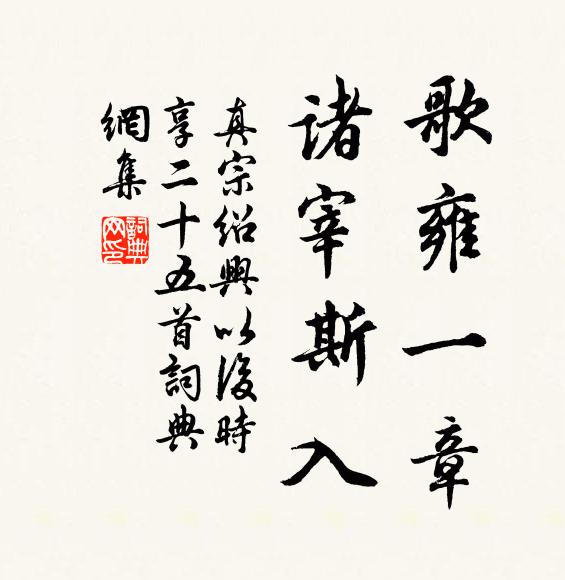 歌雍一章
諸宰斯入
真宗紹興以後時
享二十五首詞典
網集
詞典
网印